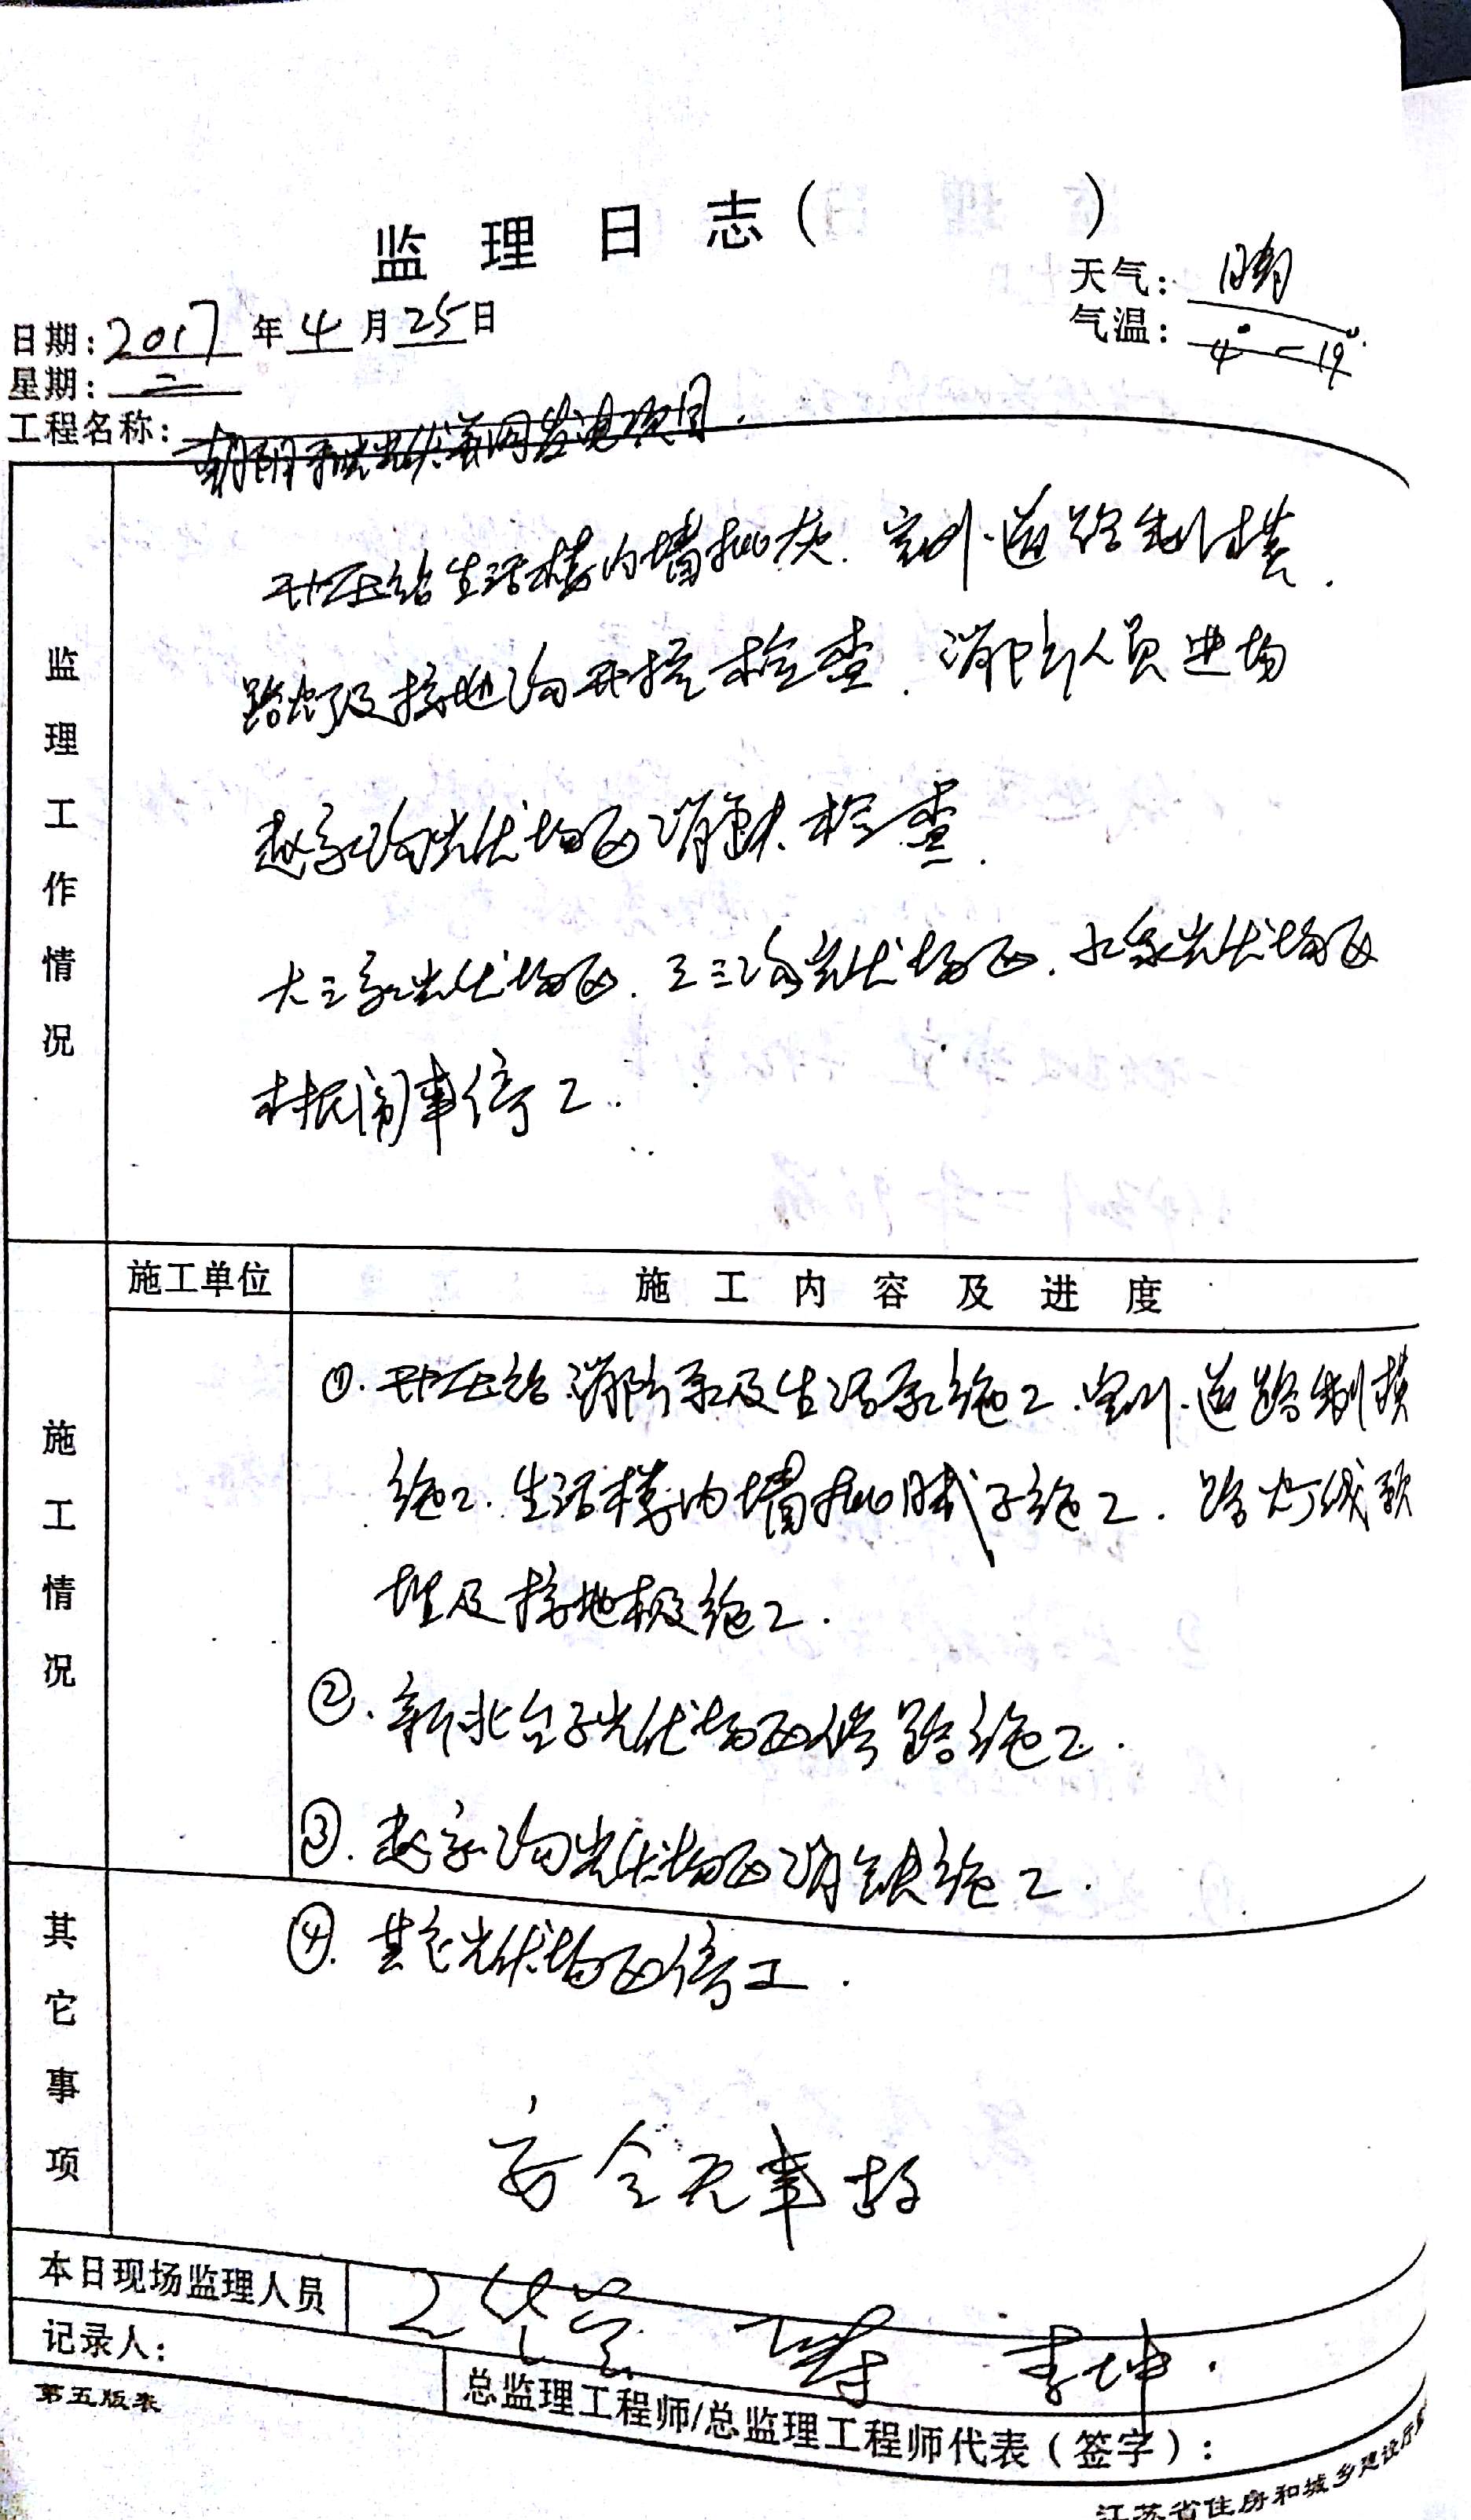 监理日志（ ）
天气：晴
日期：2017年4月25日
气温：4°－19°
星期：二
工程名称：朝阳 光伏并网发电项目.
监理工作情况
升压站生活楼内墙批灰.室外道路制模.
路灯及接地沟开挖检查.消防人员进场
赵家沟光伏场区消缺检查.
大三家光伏场区.王三沟光伏场区.水泉光伏场区
村民闹事停工.
施工单位 施工内容及进度
施工情况
①.升压站消防泵及生活泵施工.室外道路制模
施工.生活楼内墙批腻子施工.路灯线预
埋及接地极施工.
②.新北台子光伏场区修路施工.
③.赵家沟光伏场区消缺施工.
④.其它光伏场区停工.
其它事项
安全无事故
本日现场监理人员 李坤.
记录人：
总监理工程师/总监理工程师代表（签字）：
第五版表
江苏省住房和城乡建设厅